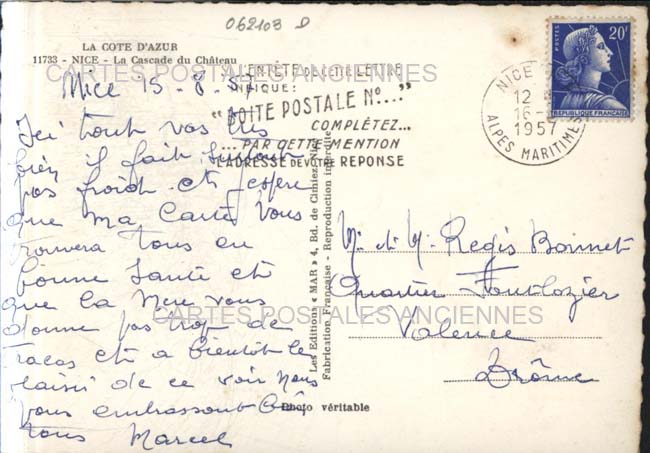 062103 D
LA COTE D'AZUR
11733 - NICE - La Cascade du Château
CARTES POSTALES ANCIENNES
Nice 15-8-57
Ici tout vas très
bien il fait
pas froid et j'espère
que ma Carte Vous
trouvera tous en
bonne Santé et
que la Mere vous
donne pas trop de
tracas et a bientôt le
plaisir de ce voir Nous
vous embrassont
tous Marcel
L'ENTÊTE DE CETTE LETTRE
INDIQUE:
"BOITE POSTALE N°...."
COMPLÉTEZ...
...PAR CETTE MENTION
L'ADRESSE DE VOTRE RÉPONSE
NICE
12
16-8
1957
ALPES MARITIMES
POSTES
20F
REPUBLIQUE FRANÇAISE
Les Editions « MAR » 4, Bd. de Cimiez, Nice
Fabrication Française - Reproduction interdite
M. et M. Regis Bonnet
Quartier Fontlozier
Valence
Drôme
CARTES POSTALES ANCIENNES
Photo véritable